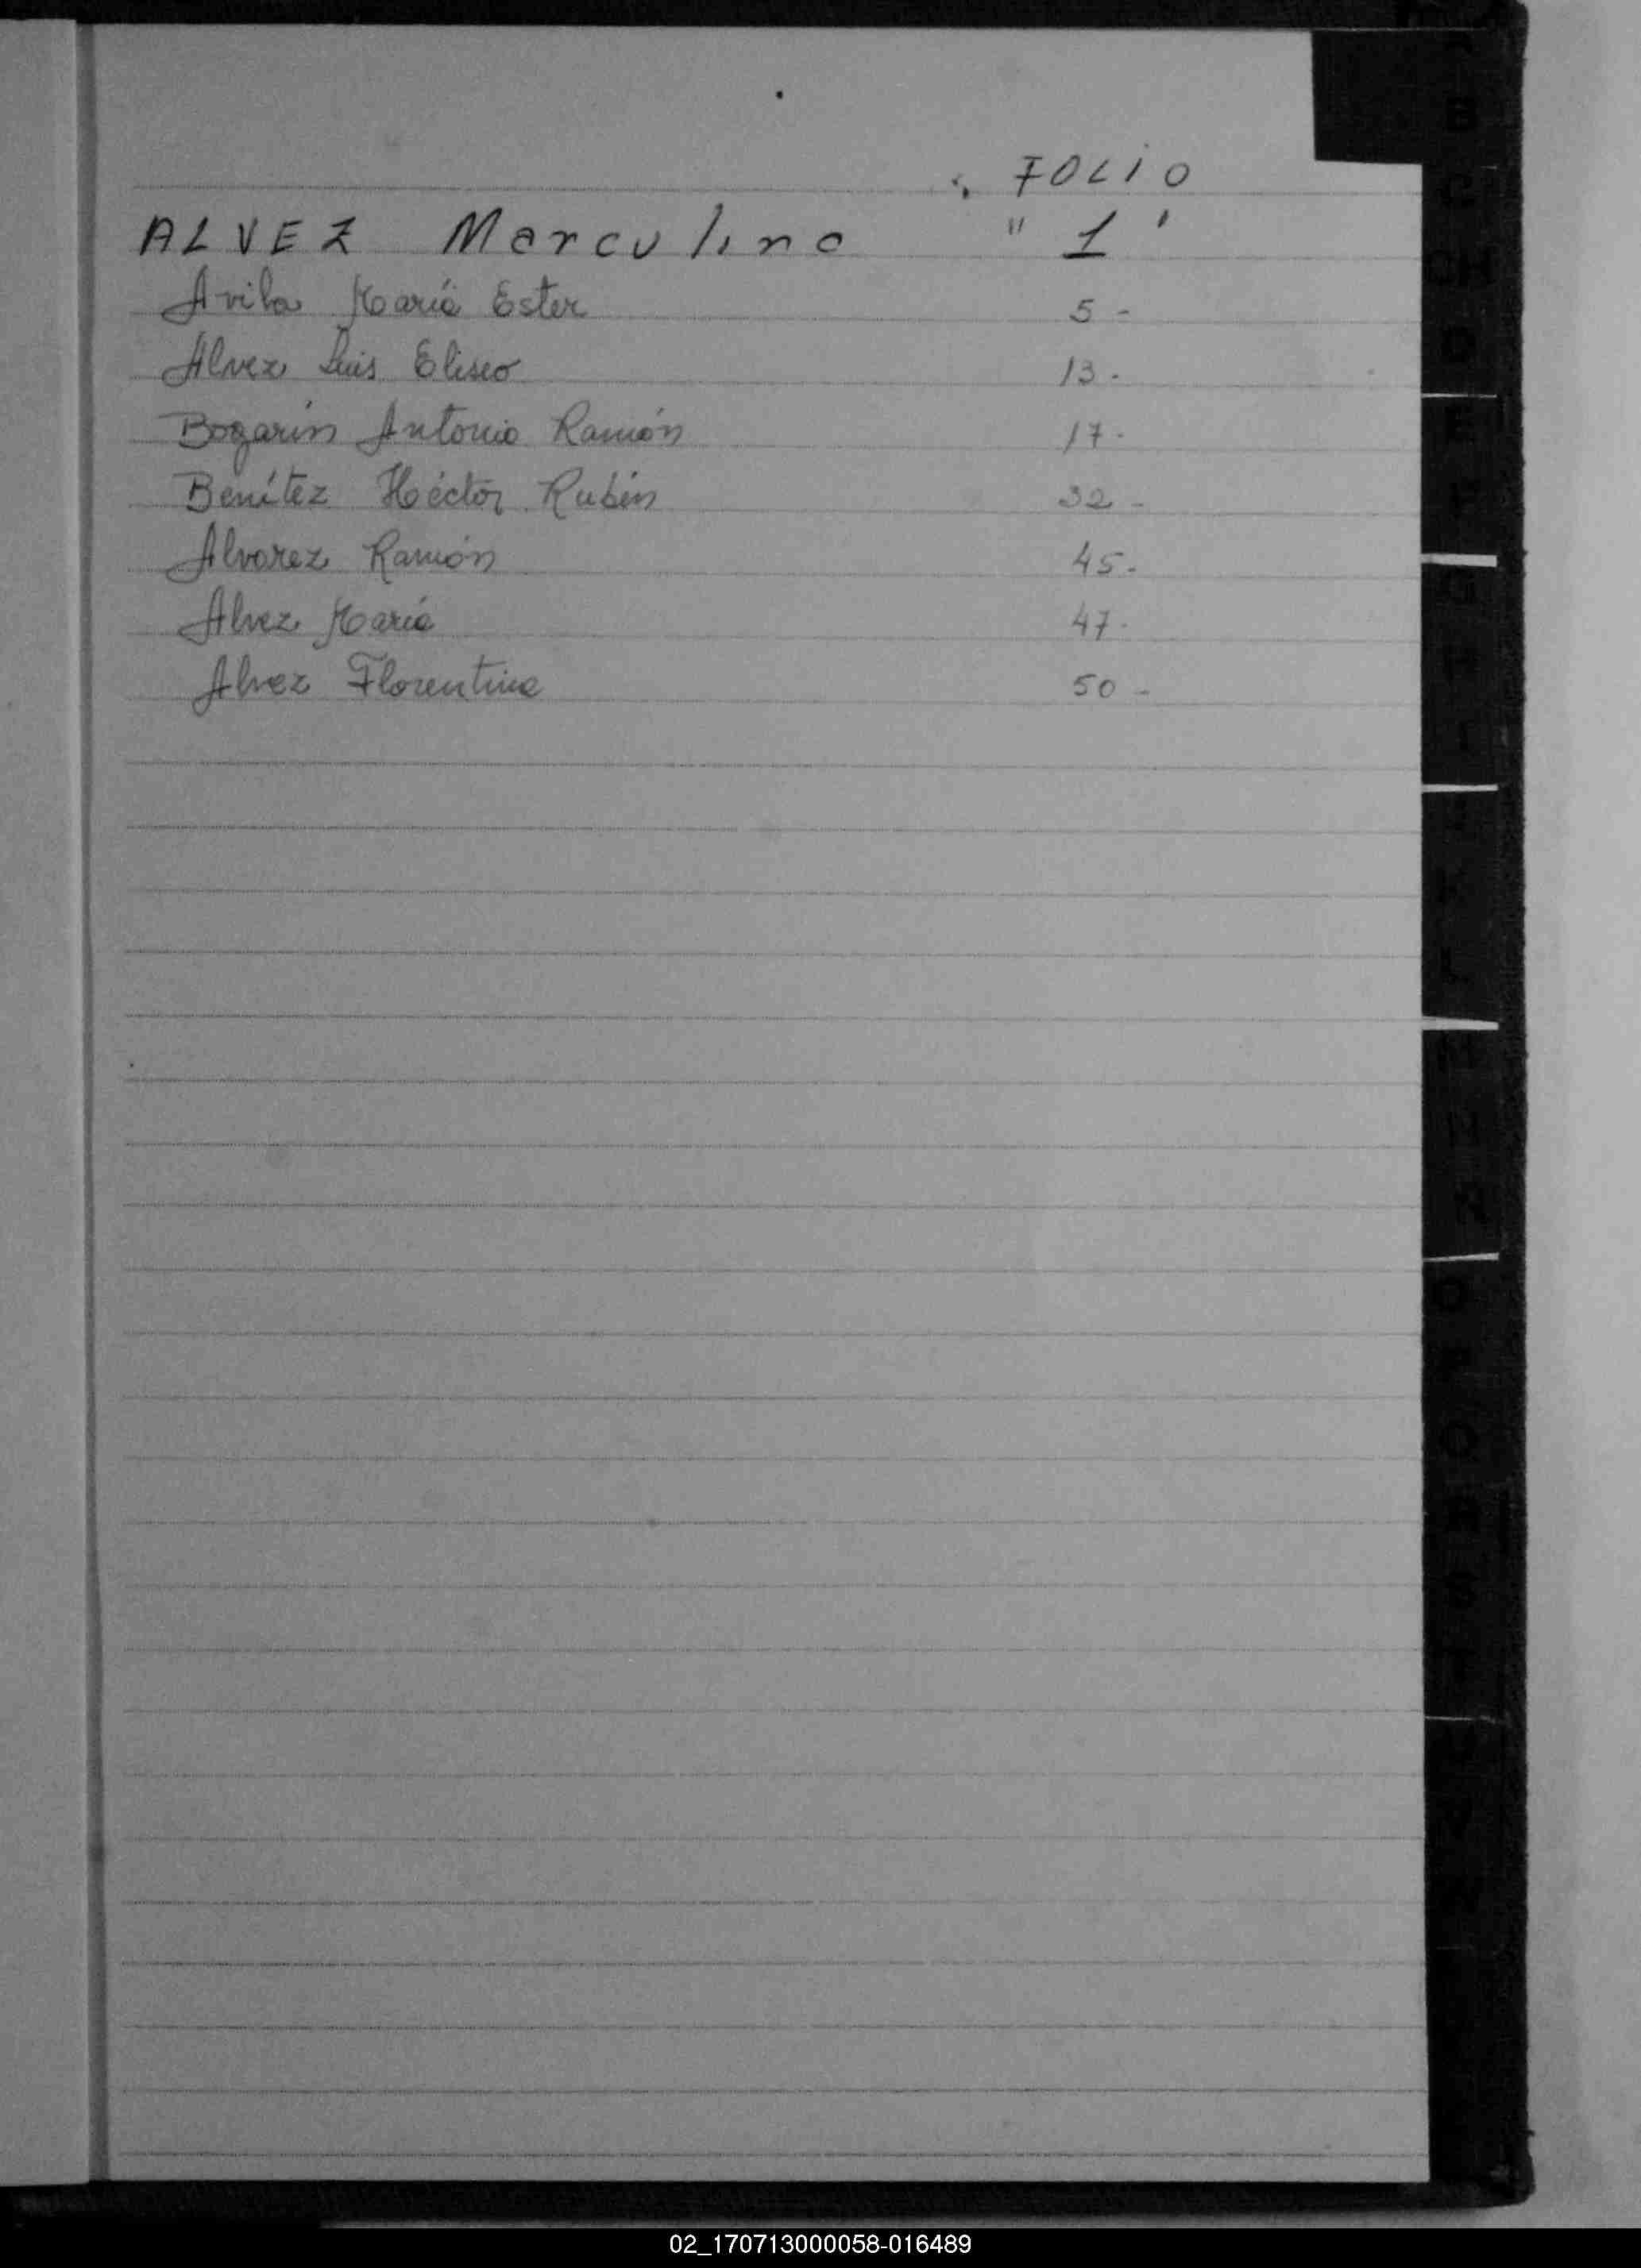 FOLIO
ALVEZ Marculino " 1 '
Avila María Ester 5 -
Alvez Luis Eliseo 13 -
Bogarín Antonio Ramón 17 -
Benítez Héctor Rubén 32 -
Alvarez Ramón 45 -
Alvez María 47 -
Alvez Florentina 50 -
B
C
CH
D
E
F
G
H
I
L
M
N
O
P
Q
R
S
T
02_170713000058-016489